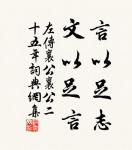 言以足志
文以足言
左傳襄公襄公二
十五年詞典網集